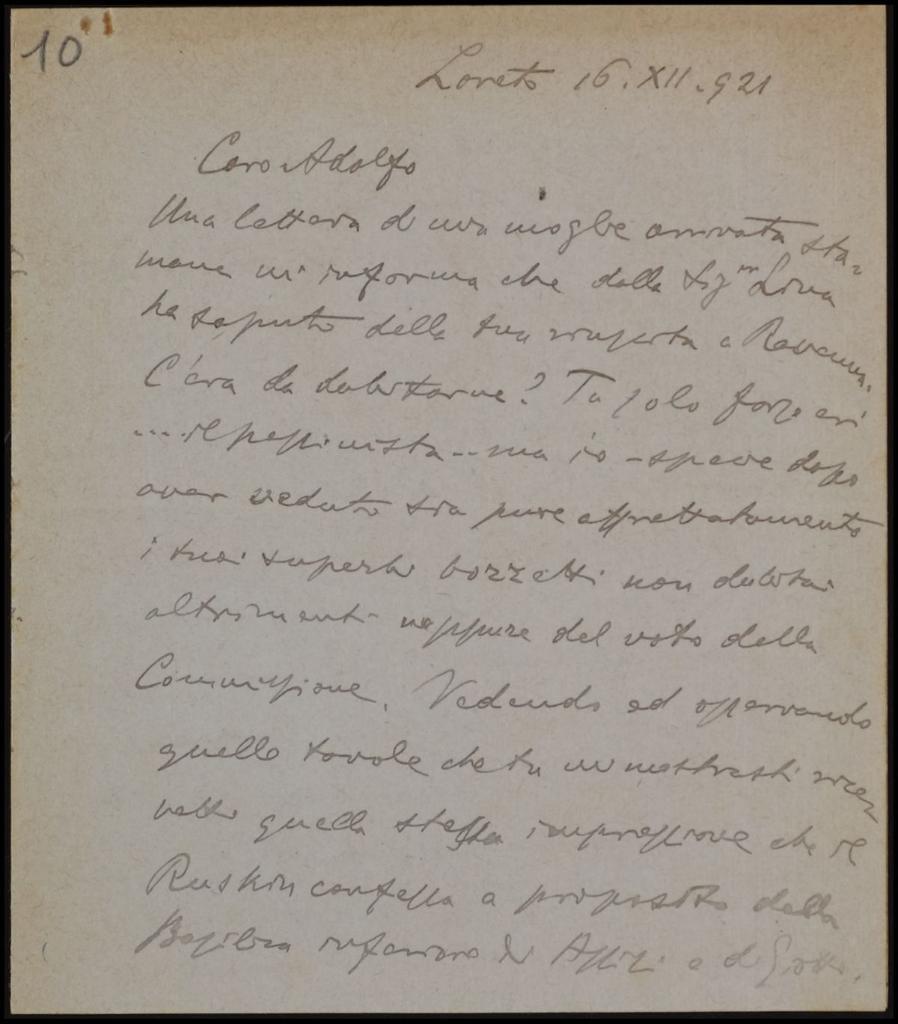 10
Loreto 16.XII.921
Caro Adolfo
Una lettera di mia moglie arrivata sta-
mane mi informa che dalla Sig.ra Lina
ha saputo della tua riuscita a Ravenna.
C'era da dubitarne? Tu solo forse eri
... il pessimista -- ma io - specie dopo
aver veduto sia pure affrettatamente
i tuoi superbi bozzetti non dubitai
altrimenti neppure del voto della
Commissione. Vedendo ed osservando
quelle tavole che tu mi mostrasti rice-
vetti quella stessa impressione che il
Ruskin confessa a proposito della
Basilica inferiore di Assisi e di Giotto.